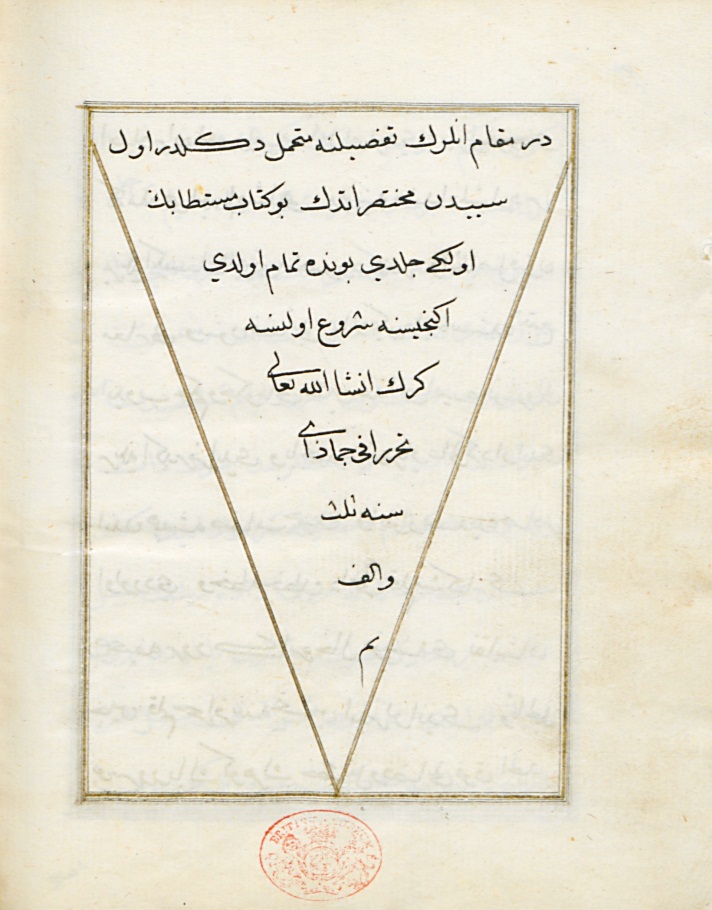 در مقام انلرك تفصيلنه متحمل دكلدر اول
سببدن مختصر اتدك بو كتاب مستطابك
اولكي جلدي بونده تمام اولدي
اكنجيسنه شروع اولنسه
كرك انشا الله تعالى
تحريرا في جماذى
سنه ثلث
والف
تم